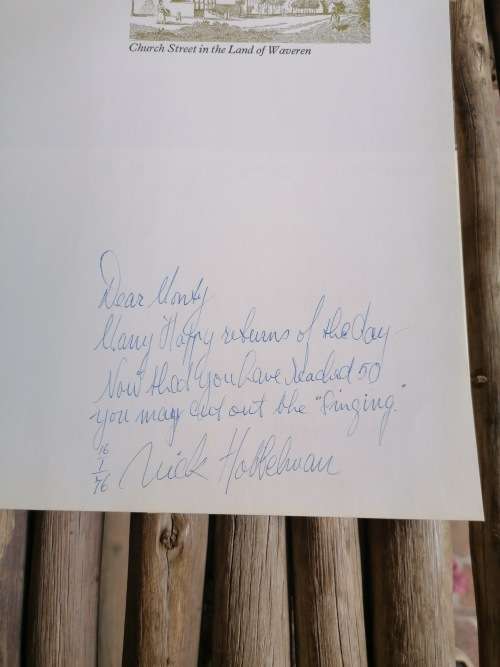 Church Street in the Land of Waveren
Dear Monty
Many Happy returns of the day
Now that you have reached 50
you may cut out the "Singing."
16
1
76
Nick Hobbelman